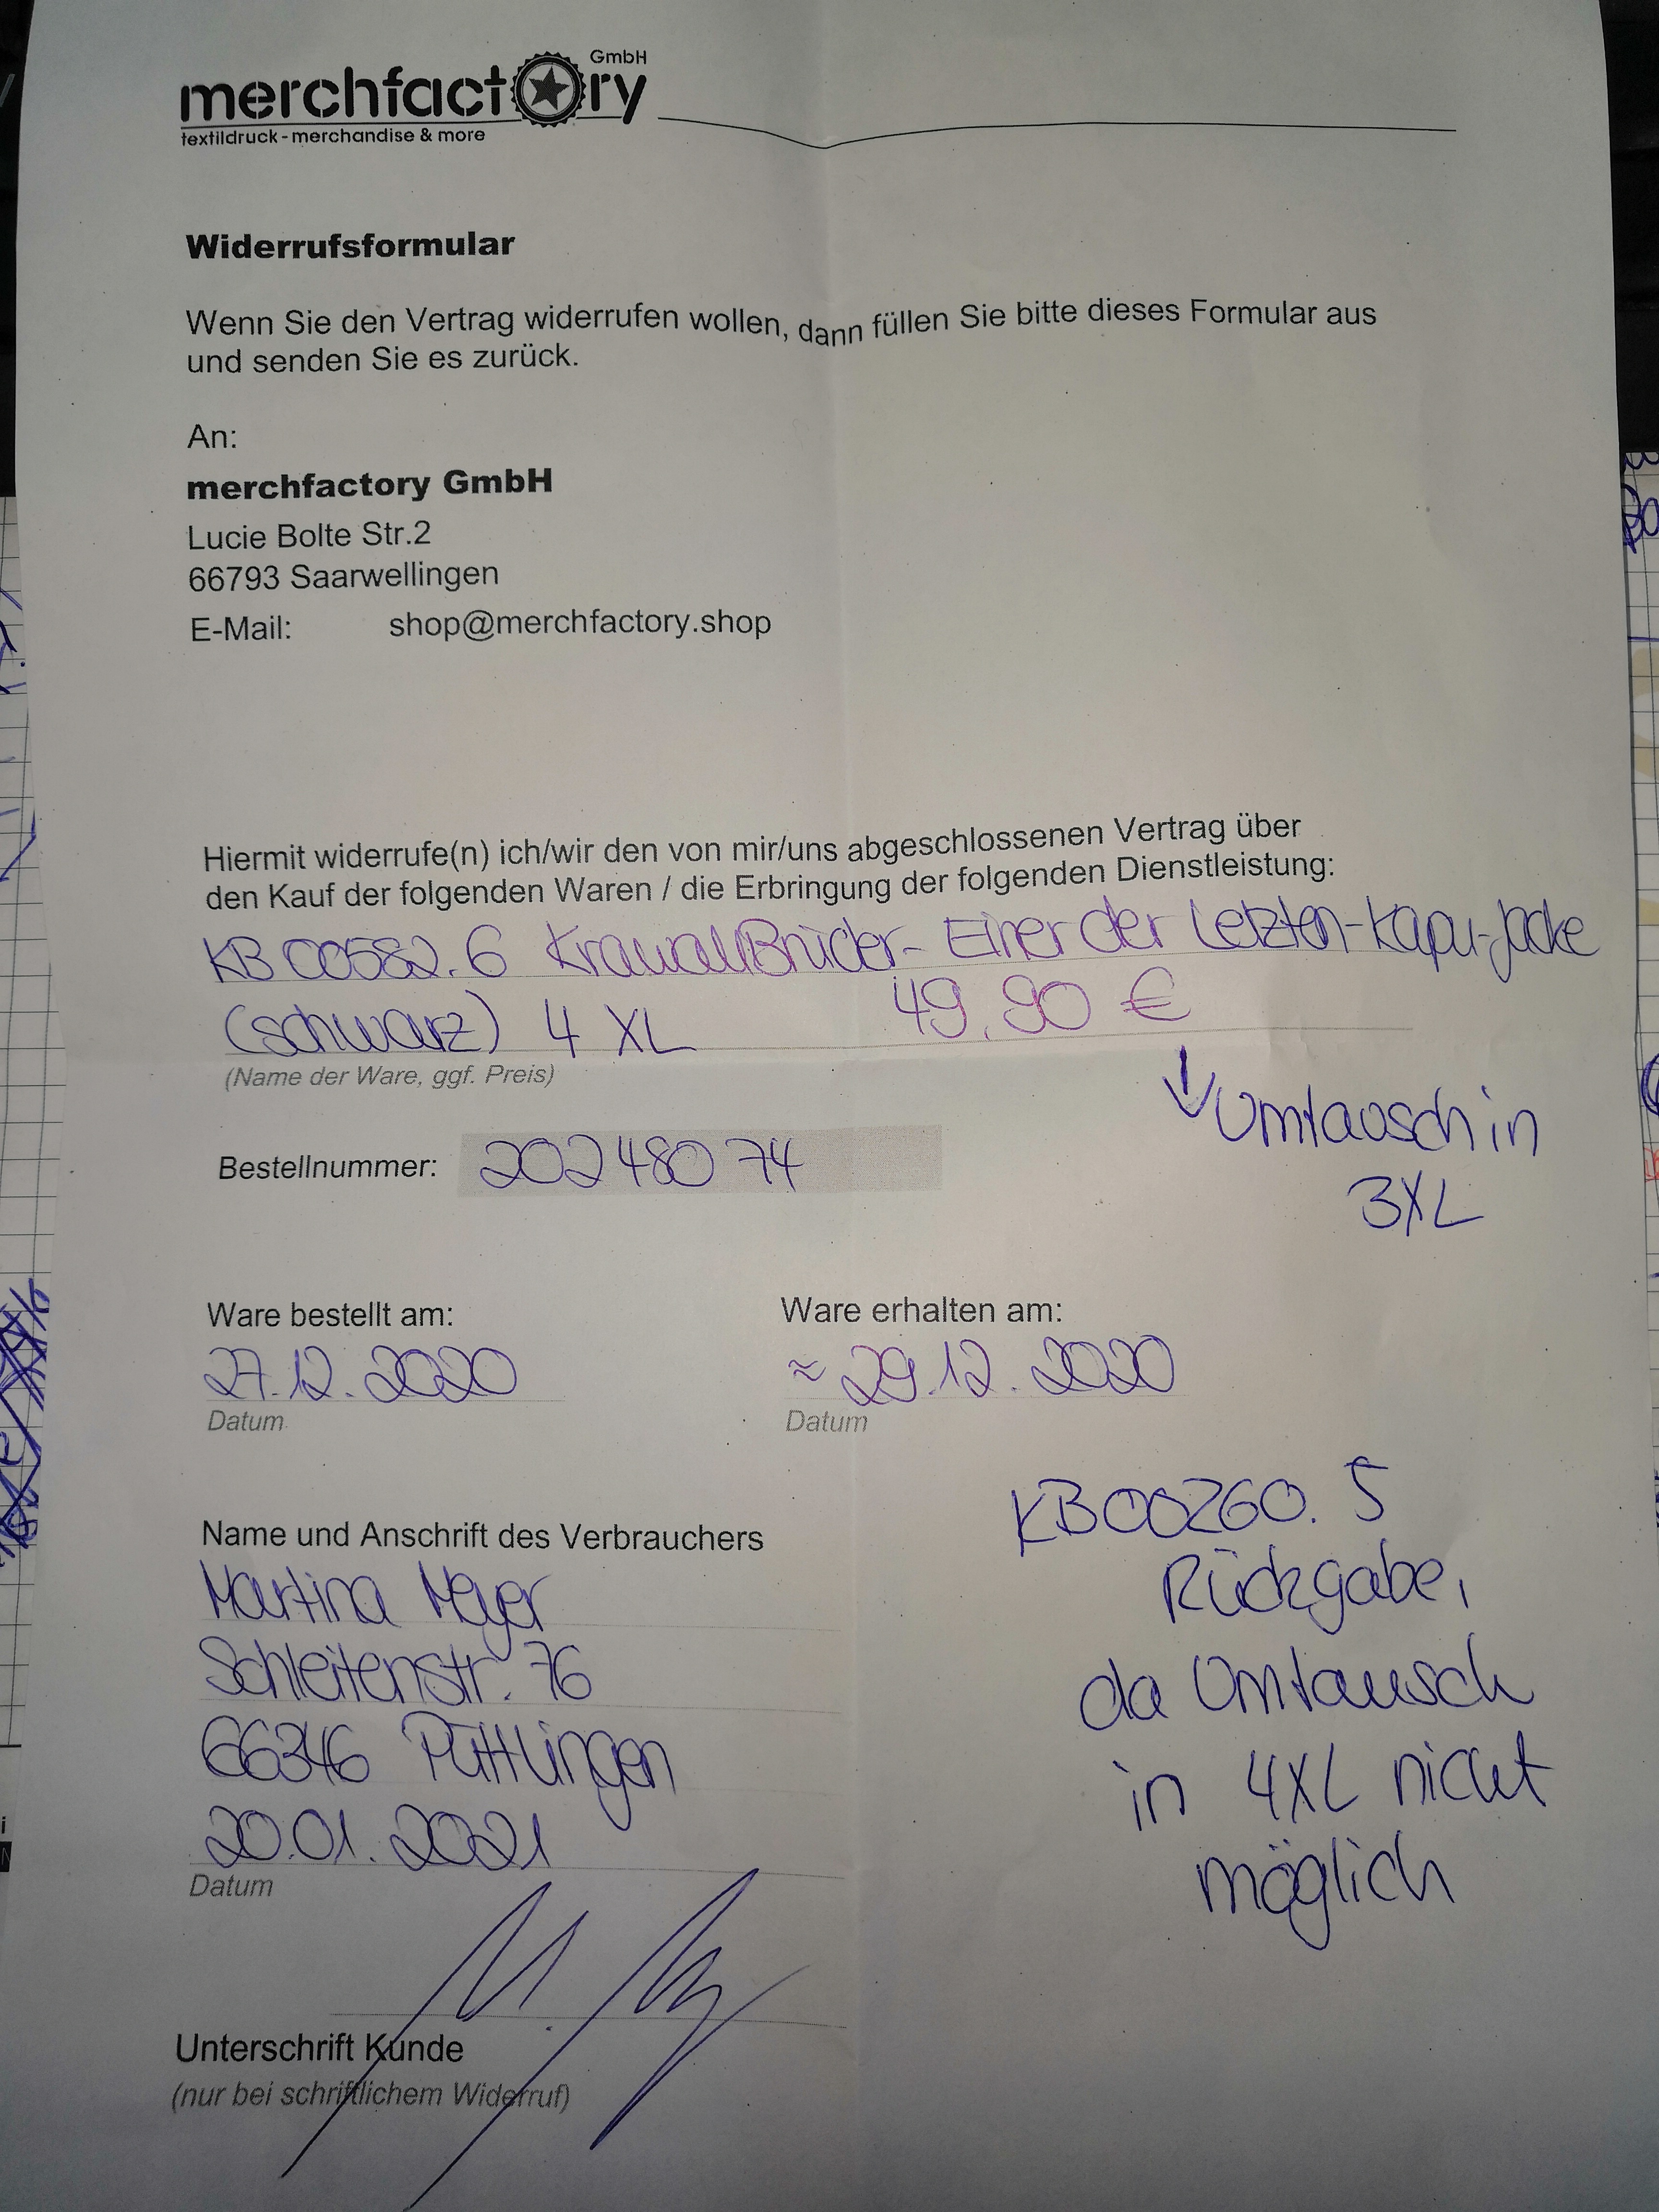 merchfactory GmbH
textildruck - merchandise & more
Widerrufsformular
Wenn Sie den Vertrag widerrufen wollen, dann füllen Sie bitte dieses Formular aus
und senden Sie es zurück.
An:
merchfactory GmbH
Lucie Bolte Str.2
66793 Saarwellingen
E-Mail: shop@merchfactory.shop
Hiermit widerrufe(n) ich/wir den von mir/uns abgeschlossenen Vertrag über
den Kauf der folgenden Waren / die Erbringung der folgenden Dienstleistung:
KB 00582.6 KrawallBrüder - Einer der Letzten - Kapu-Jacke
(schwarz) 4 XL 49,90 €
(Name der Ware, ggf. Preis)
↓ Umtausch in
3XL
Bestellnummer: 20248074
Ware bestellt am: Ware erhalten am:
27.12.2020 ≈ 29.12.2020
Datum Datum
KB00260.5
Rückgabe,
da Umtausch
in 4XL nicht
möglich
Name und Anschrift des Verbrauchers
Martina Meyer
Schleitenstr. 76
66346 Püttlingen
20.01.2021
Datum
Unterschrift Kunde
(nur bei schriftlichem Widerruf)